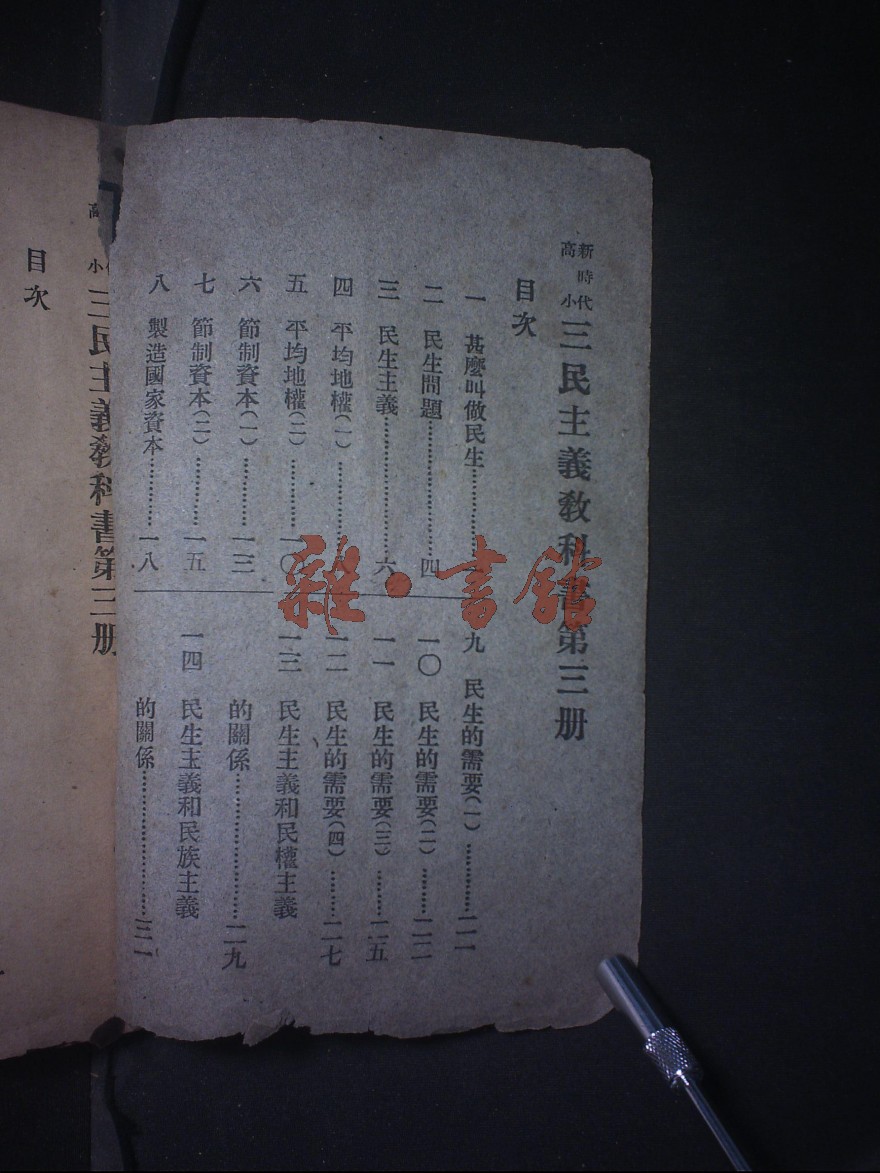 新時代
高小
三民主義教科書第三册
目次
一 甚麼叫做民生…………
二 民生問題…………四
三 民生主義…………六
四 平均地權(一)…………
五 平均地權(二)…………一〇
六 節制資本(一)…………一三
七 節制資本(二)…………一五
八 製造國家資本…………一八
九 民生的需要(一)…………二一
一〇 民生的需要(二)…………二二
一一 民生的需要(三)…………二五
一二 民生的需要(四)…………二七
一三 民生主義和民權主義
的關係…………二九
一四 民生主義和民族主義
的關係…………三一
高小
三民主義教科書第三册
目次
雜·書館